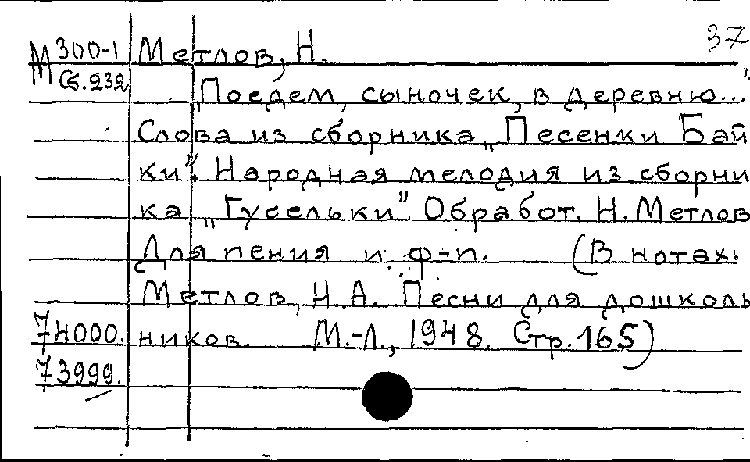 37
М 300-1 Метлов, Н.
Сб. 232 "Поедем, сыночек, в деревню..."
Слова из сборника "Песенки Бай
ки". Народная мелодия из сборни
ка "Гусельки" Обработ. Н. Метлов
Для пения и ф-п. (В нотах:
Метлов, Н.А. Песни для дошколь
74000. ников. М.-Л., 1948. Стр. 165)
73999.